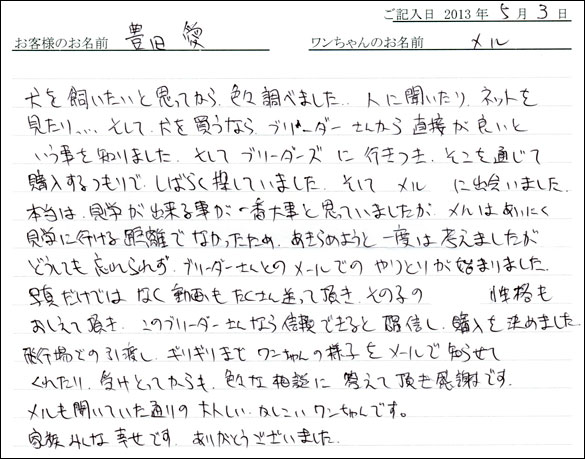 ご記入日 2013年 5月 3日
お客様のお名前 豊田 愛 ワンちゃんのお名前 メル
犬を飼いたいと思ってから、色々調べました。人に聞いたり、ネットを
見たり、、、そして、犬を買うなら、ブリーダーさんから直接が良いと
いう事を知りました。そしてブリーダーズに行きつき、そこを通じて
購入するつもりで、しばらく探していました。そして メル に出会いました。
本当は、見学が出来る事が一番大事と思っていましたが、メルはあいにく
見学に行ける距離でなかったため、あきらめようと一度は考えましたが
どうしても忘れられず、ブリーダーさんとのメールでのやりとりが始まりました。
写真だけではなく動画もたくさん送って頂き、その子の 性格も
おしえて頂き、このブリーダーさんなら信頼できると確信し、購入を決めました。
飛行場での引渡し、ギリギリまでワンちゃんの様子をメールで知らせて
くれたり、受けとってからも、色々な相談に答えて頂き感謝です。
メルも聞いていた通りの大人しい、かしこいワンちゃんです。
家族みんな幸せです。ありがとうございました。